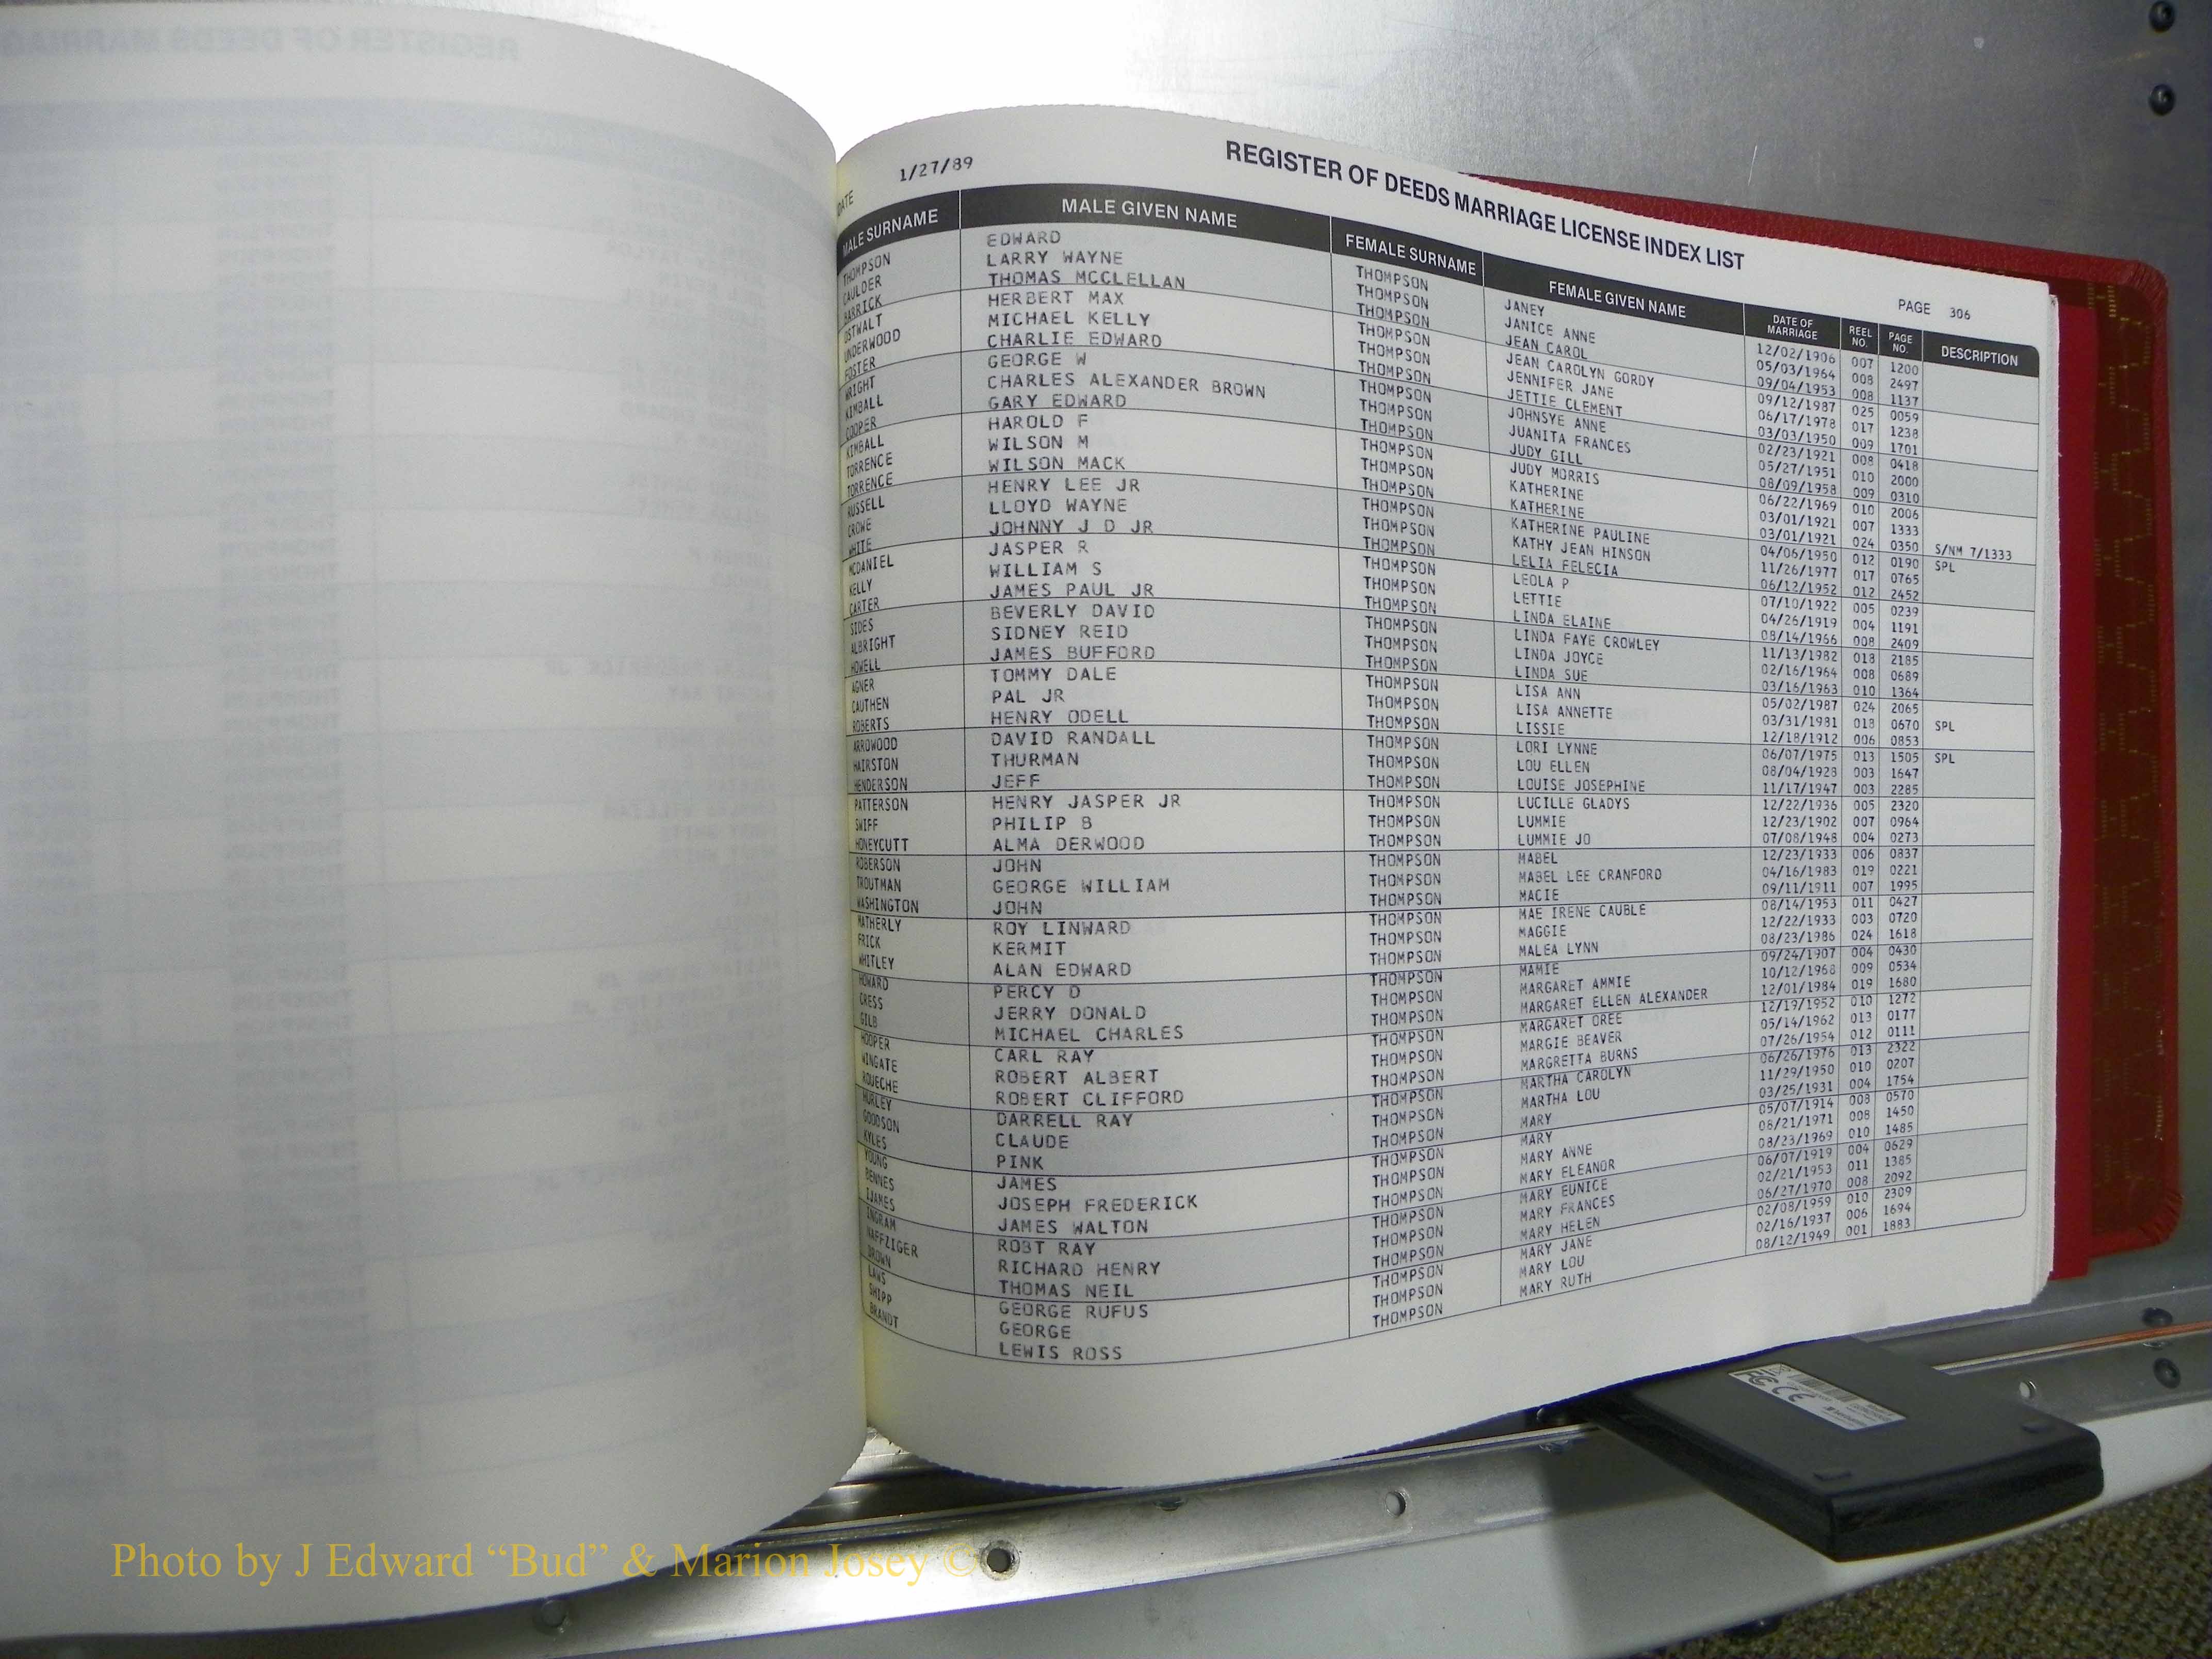 DATE 1/27/89 REGISTER OF DEEDS MARRIAGE LICENSE INDEX LIST PAGE 306
MALE SURNAME MALE GIVEN NAME FEMALE SURNAME FEMALE GIVEN NAME DATE OF MARRIAGE REEL NO. PAGE NO. DESCRIPTION
THOMPSON EDWARD THOMPSON JANEY 12/02/1906 007 1200
CAULDER LARRY WAYNE THOMPSON JANICE ANNE 05/03/1964 008 2497
BARRICK THOMAS MCCLELLAN THOMPSON JEAN CAROL 09/04/1953 008 1137
OSTWALT HERBERT MAX THOMPSON JEAN CAROLYN GORDY 09/12/1987 025 0059
UNDERWOOD MICHAEL KELLY THOMPSON JENNIFER JANE 06/17/1978 017 1238
FOSTER CHARLIE EDWARD THOMPSON JETTIE CLEMENT 03/03/1950 009 1701
WRIGHT GEORGE W THOMPSON JOHNSYE ANNE 02/23/1921 008 0418
KIMBALL CHARLES ALEXANDER BROWN THOMPSON JUANITA FRANCES 05/27/1951 010 2000
COOPER GARY EDWARD THOMPSON JUDY GILL 08/09/1958 009 0310
KIMBALL HAROLD F THOMPSON JUDY MORRIS 06/22/1969 010 2006
TORRENCE WILSON M THOMPSON KATHERINE 03/01/1921 007 1333
TORRENCE WILSON MACK THOMPSON KATHERINE 03/01/1921 024 0350 S/NM 7/1333
RUSSELL HENRY LEE JR THOMPSON KATHERINE PAULINE 04/06/1950 012 0190 SPL
CROWE LLOYD WAYNE THOMPSON KATHY JEAN HINSON 11/26/1977 017 0765
WHITE JOHNNY J D JR THOMPSON LELIA FELECIA 06/12/1952 012 2452
MCDANIEL JASPER R THOMPSON LEOLA P 07/10/1922 005 0239
KELLY WILLIAM S THOMPSON LETTIE 04/26/1919 004 1191
CARTER JAMES PAUL JR THOMPSON LINDA ELAINE 08/14/1966 008 2409
SIDES BEVERLY DAVID THOMPSON LINDA FAYE CROWLEY 11/13/1982 018 2185
ALBRIGHT SIDNEY REID THOMPSON LINDA JOYCE 02/16/1964 008 0689
HOWELL JAMES BUFFORD THOMPSON LINDA SUE 03/16/1963 010 1364
AGNER TOMMY DALE THOMPSON LISA ANN 05/02/1987 024 2065
CAUTHEN PAL JR THOMPSON LISA ANNETTE 03/31/1981 018 0670 SPL
ROBERTS HENRY ODELL THOMPSON LISSIE 12/18/1912 006 0853
ARROWOOD DAVID RANDALL THOMPSON LORI LYNNE 06/07/1975 013 1505 SPL
HAIRSTON THURMAN THOMPSON LOU ELLEN 08/04/1928 003 1647
HENDERSON JEFF THOMPSON LOUISE JOSEPHINE 11/17/1947 003 2285
PATTERSON HENRY JASPER JR THOMPSON LUCILLE GLADYS 12/22/1936 005 2320
SWIFF PHILIP B THOMPSON LUMMIE 12/23/1902 007 0964
HONEYCUTT ALMA DERWOOD THOMPSON LUMMIE JO 07/08/1948 004 0273
ROBERSON JOHN THOMPSON MABEL 12/23/1933 006 0837
TROUTMAN GEORGE WILLIAM THOMPSON MABEL LEE CRANFORD 04/16/1983 019 0221
WASHINGTON JOHN THOMPSON MACIE 09/11/1911 007 1995
MATHERLY ROY LINWARD THOMPSON MAE IRENE CAUBLE 08/14/1953 011 0427
FRICK KERMIT THOMPSON MAGGIE 12/22/1933 003 0720
WHITLEY ALAN EDWARD THOMPSON MALEA LYNN 08/23/1986 024 1618
HOWARD PERCY D THOMPSON MAMIE 09/24/1907 004 0430
CRESS JERRY DONALD THOMPSON MARGARET AMMIE 10/12/1968 009 0534
GILB MICHAEL CHARLES THOMPSON MARGARET ELLEN ALEXANDER 12/01/1984 019 1680
HOOPER CARL RAY THOMPSON MARGARET OREE 12/19/1952 010 1272
WINGATE ROBERT ALBERT THOMPSON MARGIE BEAVER 05/14/1962 013 0177
ROUECHE ROBERT CLIFFORD THOMPSON MARGRETTA BURNS 07/26/1954 012 0111
HURLEY DARRELL RAY THOMPSON MARTHA CAROLYN 06/26/1976 013 2322
GOODSON CLAUDE THOMPSON MARTHA LOU 11/29/1950 010 0207
KYLES PINK THOMPSON MARY 03/25/1931 004 1754
YOUNG JAMES THOMPSON MARY 05/07/1914 008 0570
BENNES JOSEPH FREDERICK THOMPSON MARY ANNE 08/21/1971 008 1450
IJAMES JAMES WALTON THOMPSON MARY ELEANOR 08/23/1969 010 1485
INGRAM ROBT RAY THOMPSON MARY EUNICE 06/07/1919 004 0629
NAFFZIGER RICHARD HENRY THOMPSON MARY FRANCES 02/21/1953 011 1385
BROWN THOMAS NEIL THOMPSON MARY HELEN 06/27/1970 008 2092
LAWS GEORGE RUFUS THOMPSON MARY JANE 02/08/1959 010 2309
SHIPP GEORGE THOMPSON MARY LOU 02/16/1937 006 1694
BRANDT LEWIS ROSS THOMPSON MARY RUTH 08/12/1949 001 1883
Photo by J Edward “Bud” & Marion Josey ©